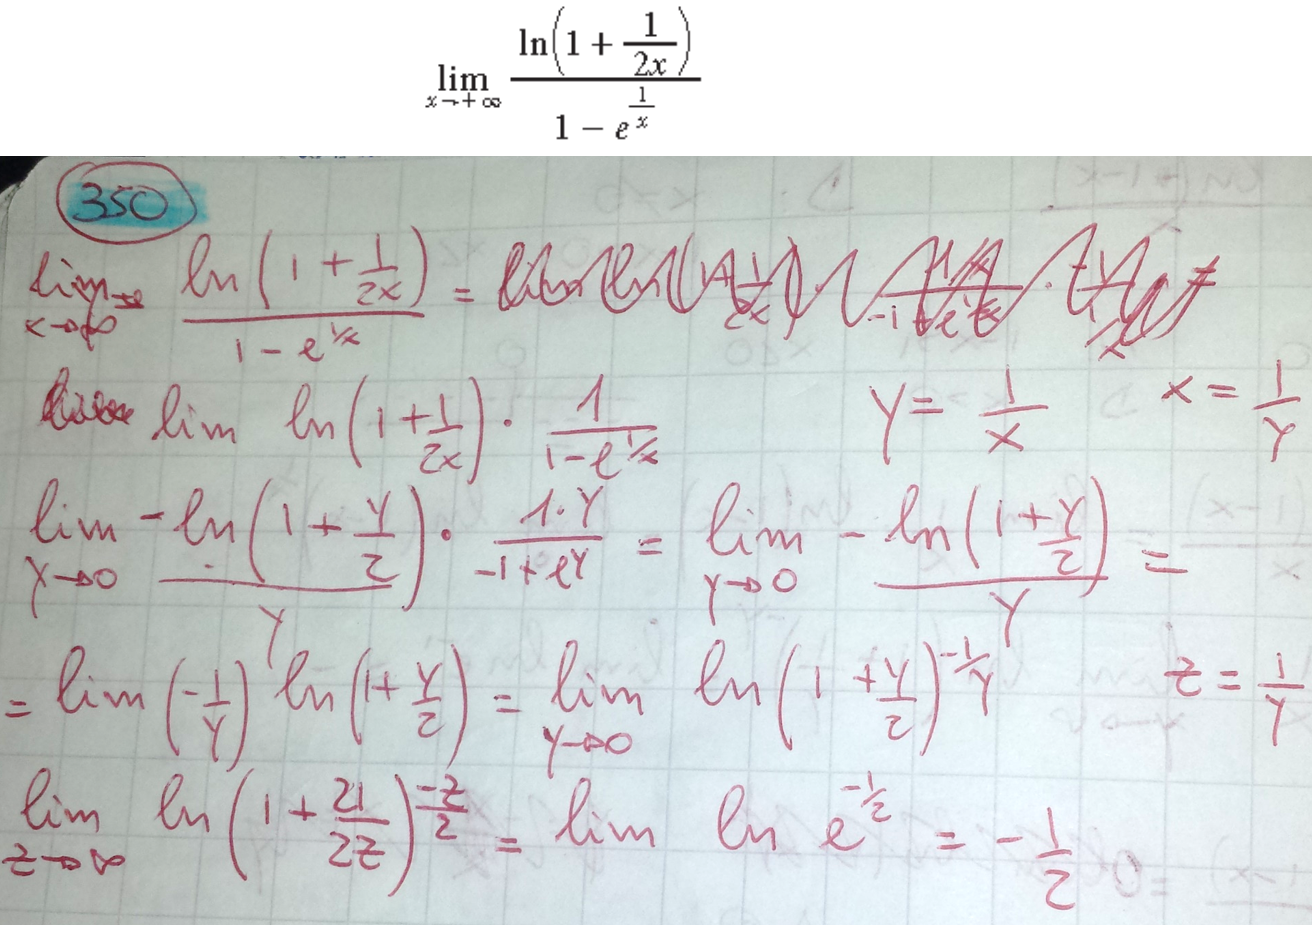 lim x→+∞ ln(1 + 1/2x) / 1 − e^(1/x)
350
lim x→∞ ln(1 + 1/2x) / 1 − e^(1/x) =
lim ln(1 + 1/2x) · 1 / 1 − e^(1/x) y = 1/x x = 1/y
lim y→0 − ln(1 + y/2) / y · 1·y / −1 + e^y = lim y→0 − ln(1 + y/2) / y =
= lim (−1/y) ln(1 + y/2) = lim y→0 ln(1 + y/2)^(−1/y) z = 1/y
lim z→∞ ln(1 + 21/2z)^(−z/2) = lim ln e^(−1/2) = −1/2